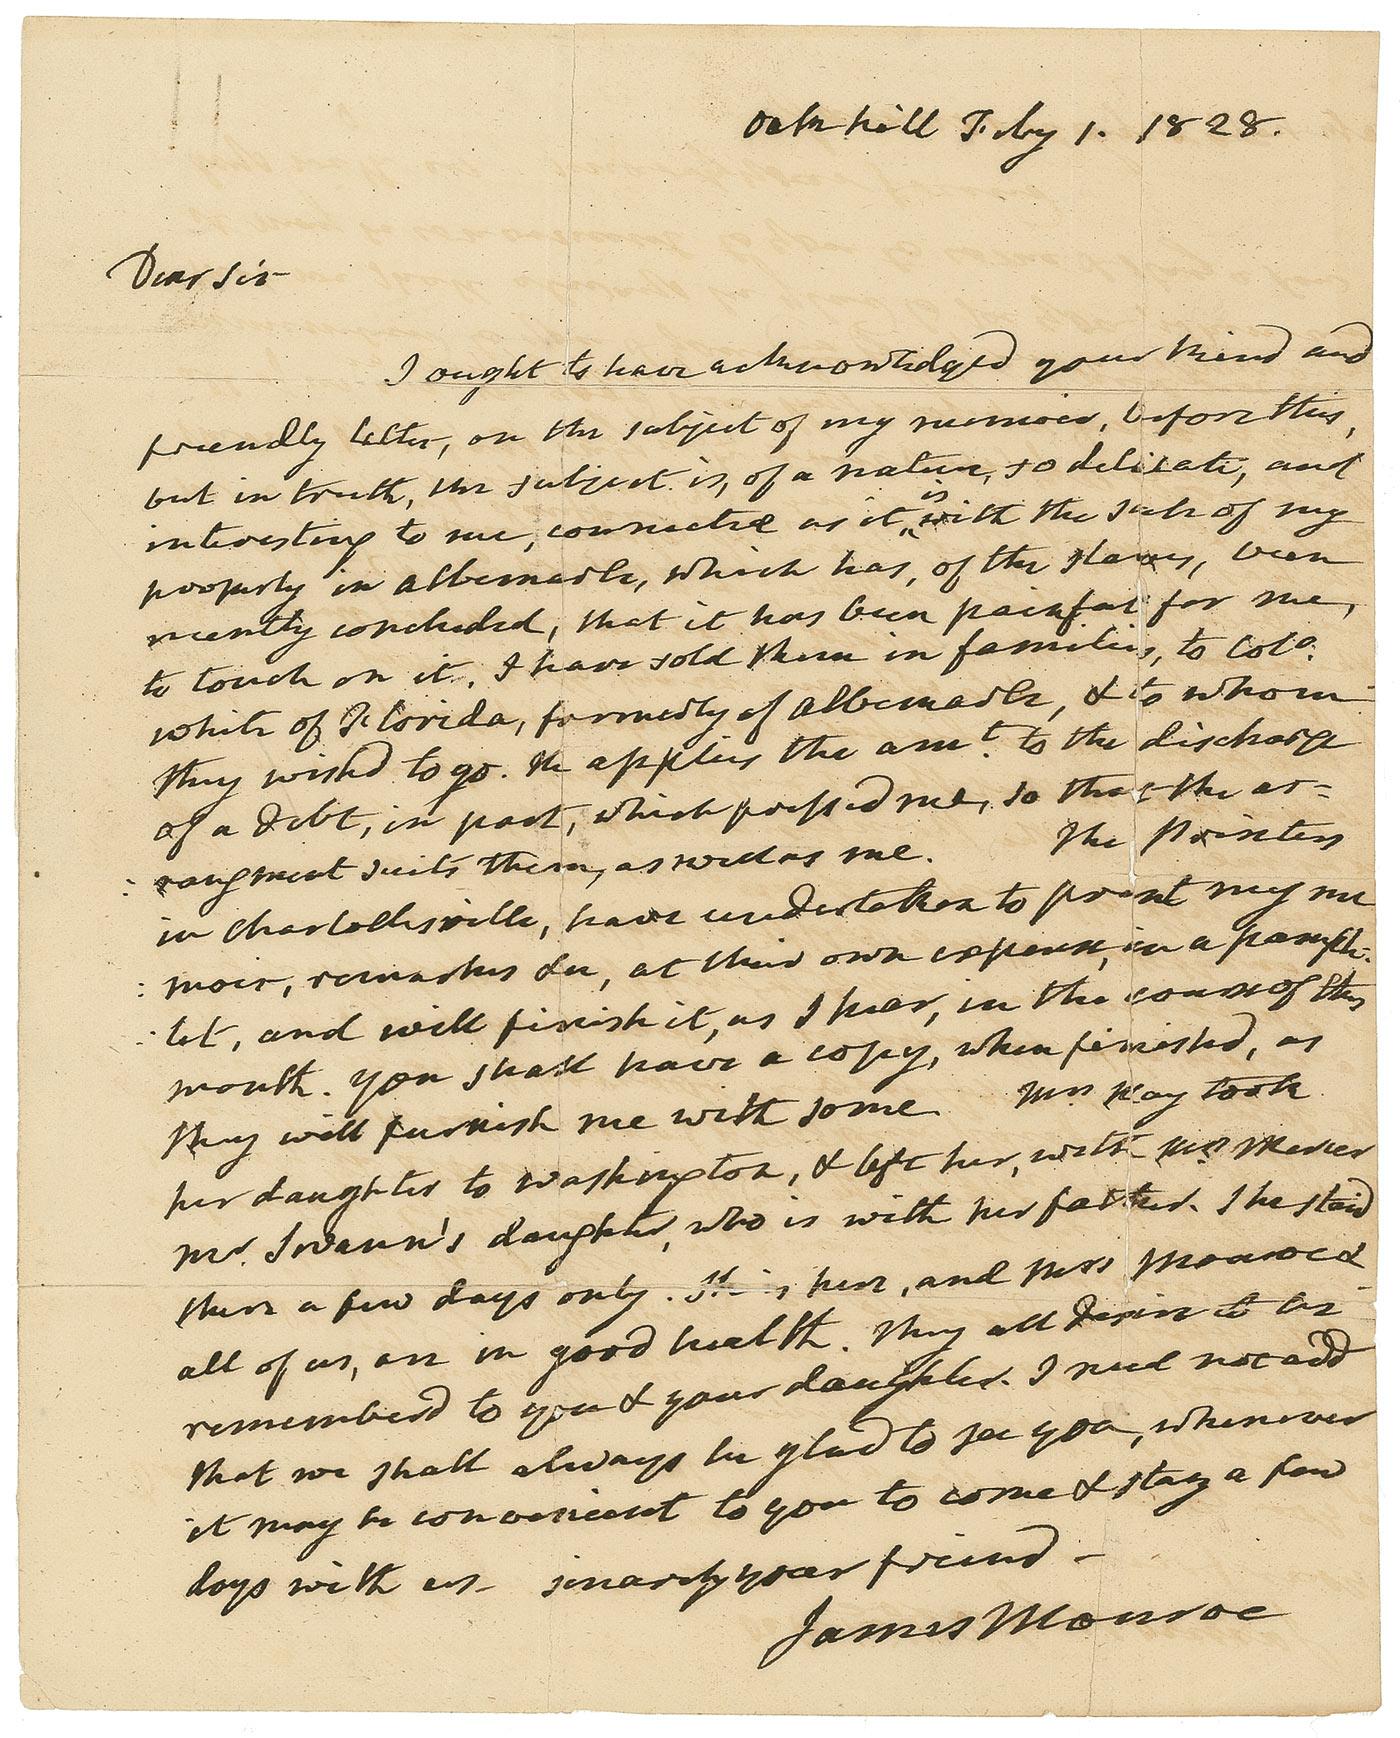 Oak hill Feby 1. 1828.
Dear Sir
I ought to have acknowledged your kind and
friendly letter, on the subject of my memoir, before this,
but in truth, the subject is, of a nature, so delicate, and
interesting to me, connected as it is with the sale of my
property in albemarle, which has, of the slaves, been
recently concluded, that it has been painful for me,
to touch on it. I have sold them in families, to Colo.
white of Florida, formerly of albemarle, & to whom
they wished to go. He applies the amt. to the discharge
of a debt, in part, which pressed me, so that the ar=
rangment suits them, as well as me. The Printers
in Charlottesville, have undertaken to print my me
moir, remarks &c, at their own expense, in a pamph-
let, and will finish it, as I hear, in the course of this
month. you shall have a copy, when finished, as
they will furnish me with some. Mrs Hay took
her daughter to washington, & left her, with Mrs Mercer
Mr. Swann's daughter, who is with her father. She staid
there a few days only. She is here, and Mrs Monroe &
all of us, are in good health. They all desire to be
rememberd to you & your daughter. I need not add
that we shall always be glad to see you, whenever
it may be convenient to you to come & stay a few
days with us - sincerely your friend -
James Monroe